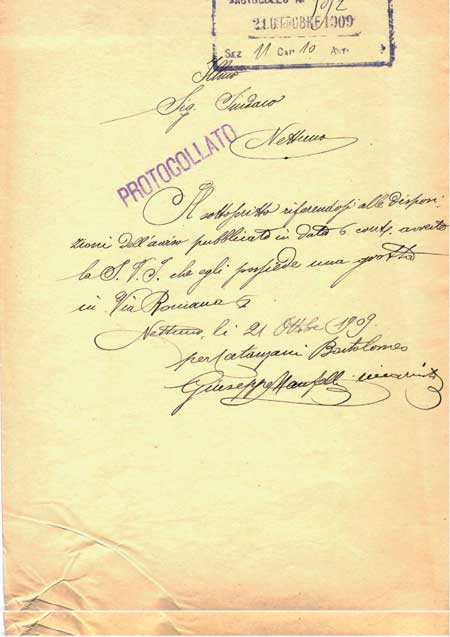 PROTOCOLLO N. 
21 OTTOBRE 1909
SEZ 11 CAT 10 ART.
Illmo
Sig. Sindaco
Nettuno
PROTOCOLLATO
Il sottoscritto riferendosi alle disposi-
zioni dell'avviso pubblicato in data 6 corr. avverte
la S. V. I. che egli possiede una grotta
in Via Romana
Nettuno, li 21 Ottobre 1909.
per Catanzani Bartolomeo
Giuseppe